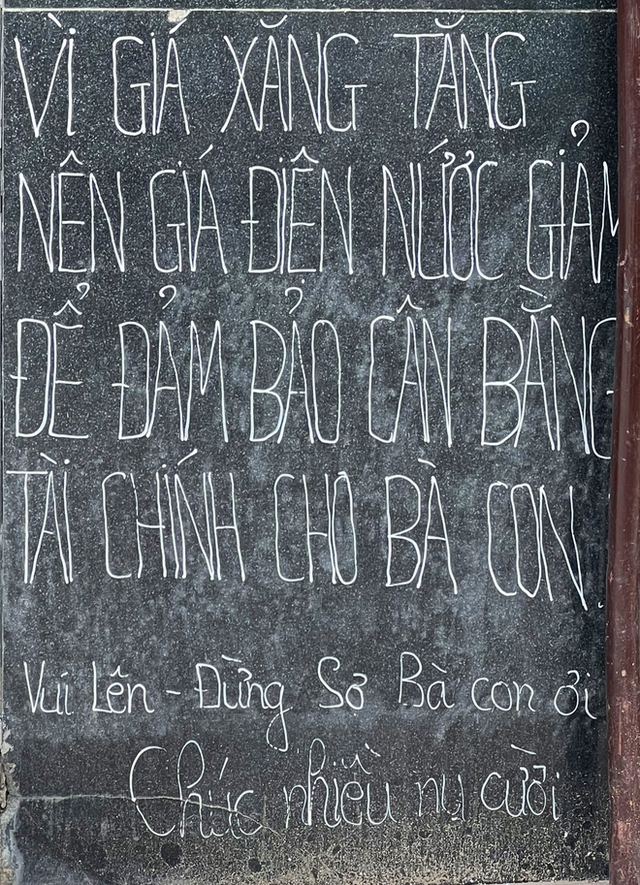 VÌ GIÁ XĂNG TĂNG
NÊN GIÁ ĐIỆN NƯỚC GIẢM
ĐỂ ĐẢM BẢO CÂN BẰNG
TÀI CHÍNH CHO BÀ CON.
Vui Lên - Đừng Sợ Bà con ơi
Chúc nhiều nụ cười